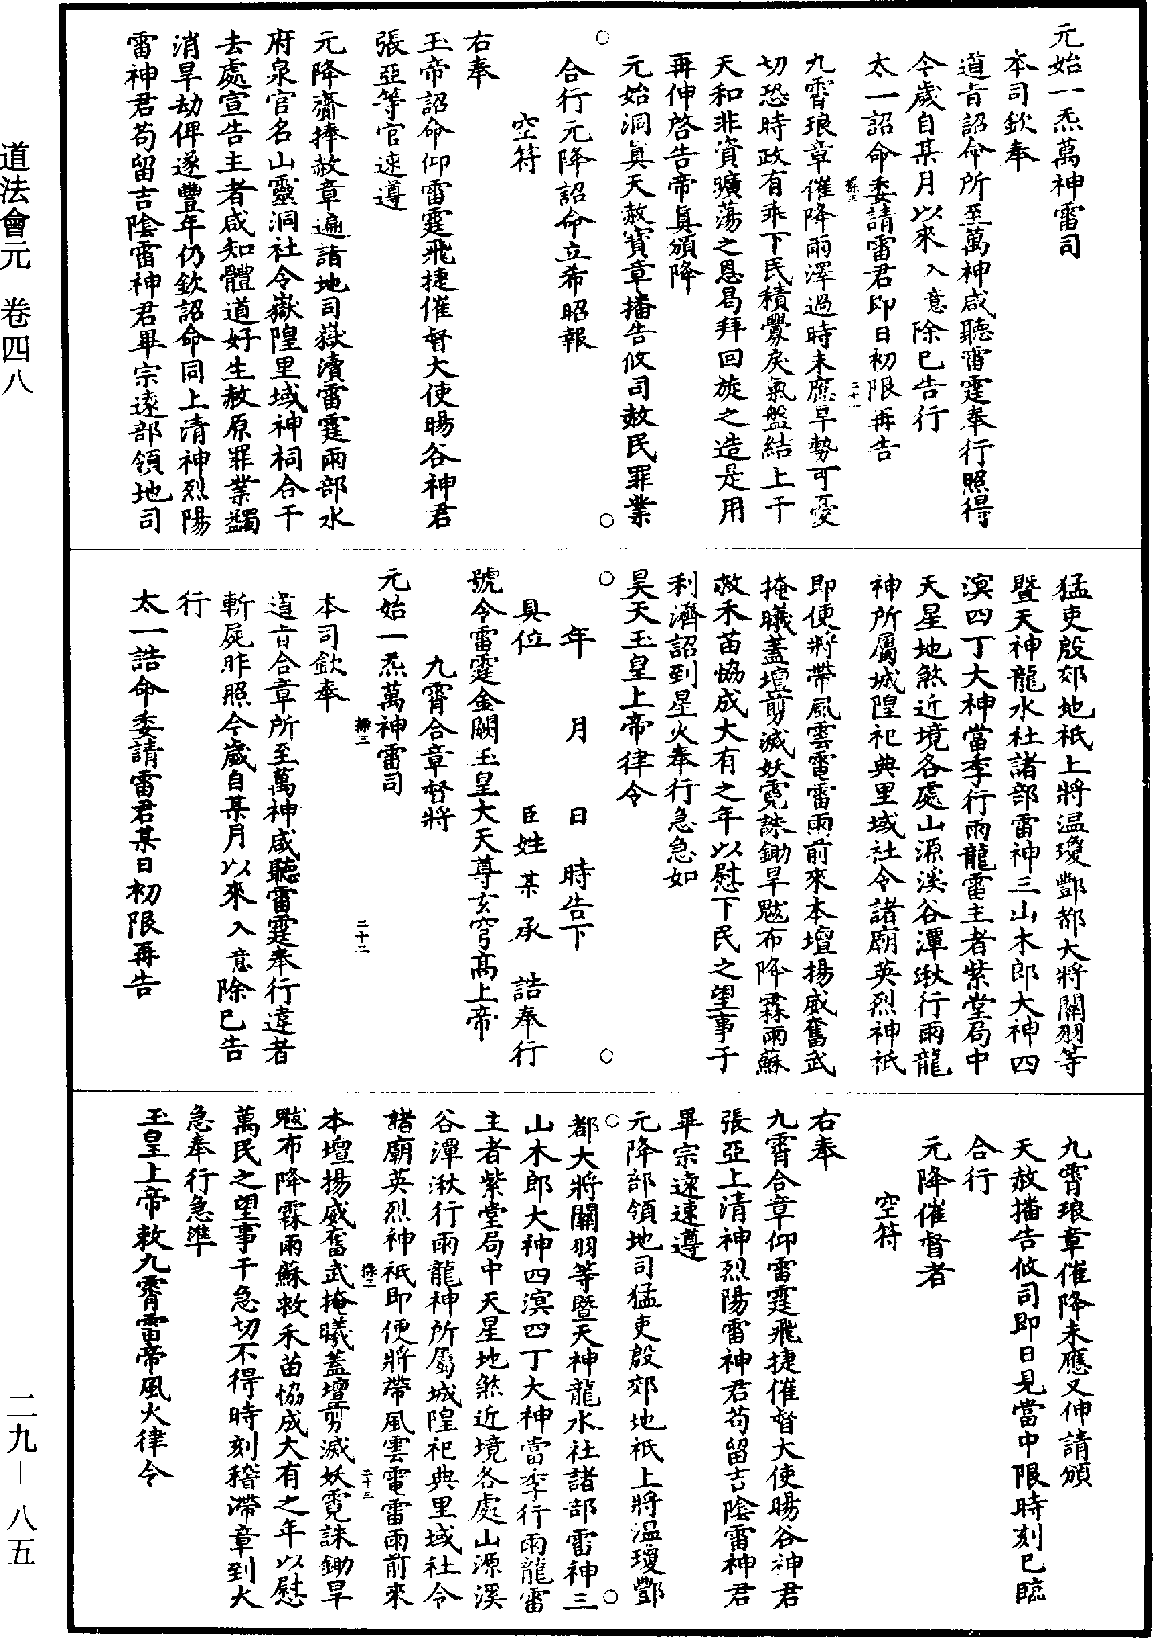 元始一炁萬神雷司
本司欽奉
道旨詔命所至萬神咸聽雷霆奉行照得
今歲自某月以來入意除已告行
太一詔命委請雷君即日初限再告
九霄琅章催降雨澤過時未應旱勢可憂
切恐時政有乖下民積釁戾氣盤結上干
天和非資曠蕩之恩曷拜回旋之造是用
再伸啓告帝真頒降
元始洞真天赦寶章播告攸司赦民罪業
合行元降詔命立希昭報
空符
右奉
玉帝詔命仰雷霆飛捷催督大使暘谷神君
張亞等官速遵
元降齎捧赦章遍詣地司嶽瀆雷霆兩部水
府泉官名山靈洞社令嶽隍里域神祠合干
去處宣告主者咸知體道好生赦原罪業蠲
消旱劫俾遂豐年仍欽詔命同上清神烈陽
雷神君苟留吉陰雷神君畢宗遠部領地司
猛吏殷郊地祇上將溫瓊酆都大將關羽等
暨天神龍水社諸部雷神三山木郎大神四
溟四丁大神當季行雨龍雷主者紫堂局中
天星地煞近境各處山源溪谷潭湫行雨龍
神所屬城隍祀典里域社令諸廟英烈神祇
即便將帶風雲電雷雨前來本壇揚威奮武
掩曦蓋壇剪滅妖霓誅鋤旱魃布降霖雨蘇
救禾苗協成大有之年以慰下民之望事干
利濟詔到星火奉行急急如
昊天玉皇上帝律令
年 月 日 時告下
具位 臣姓某承 誥奉行
號令雷霆金闕玉皇大天尊玄穹高上帝
九霄合章督將
元始一炁萬神雷司
本司欽奉
道旨合章所至萬神咸聽雷霆奉行違者
斬屍昨照今歲自某月以來入意除已告
行
太一誥命委請雷君某日初限再告
九霄琅章催降未應又伸請頒
天赦播告攸司即日見當中限時刻已臨
合行
元降催督者
空符
右奉
九霄合章仰雷霆飛捷催督大使暘谷神君
張亞上清神烈陽雷神君苟留吉陰雷神君
畢宗遠速遵
元降部領地司猛吏殷郊地祇上將溫瓊酆
都大將關羽等暨天神龍水社諸部雷神三
山木郎大神四溟四丁大神當季行雨龍雷
主者紫堂局中天星地煞近境各處山源溪
谷潭湫行雨龍神所屬城隍祀典里域社令
諸廟英烈神祇即便將帶風雲電雷雨前來
本壇揚威奮武掩曦蓋壇剪滅妖霓誅鋤旱
魃布降霖雨蘇救禾苗協成大有之年以慰
萬民之望事干急切不得時刻稽滯章到火
急奉行急準
玉皇上帝敕九霄雷帝風火律令
道法會元 卷四八
二九－八五